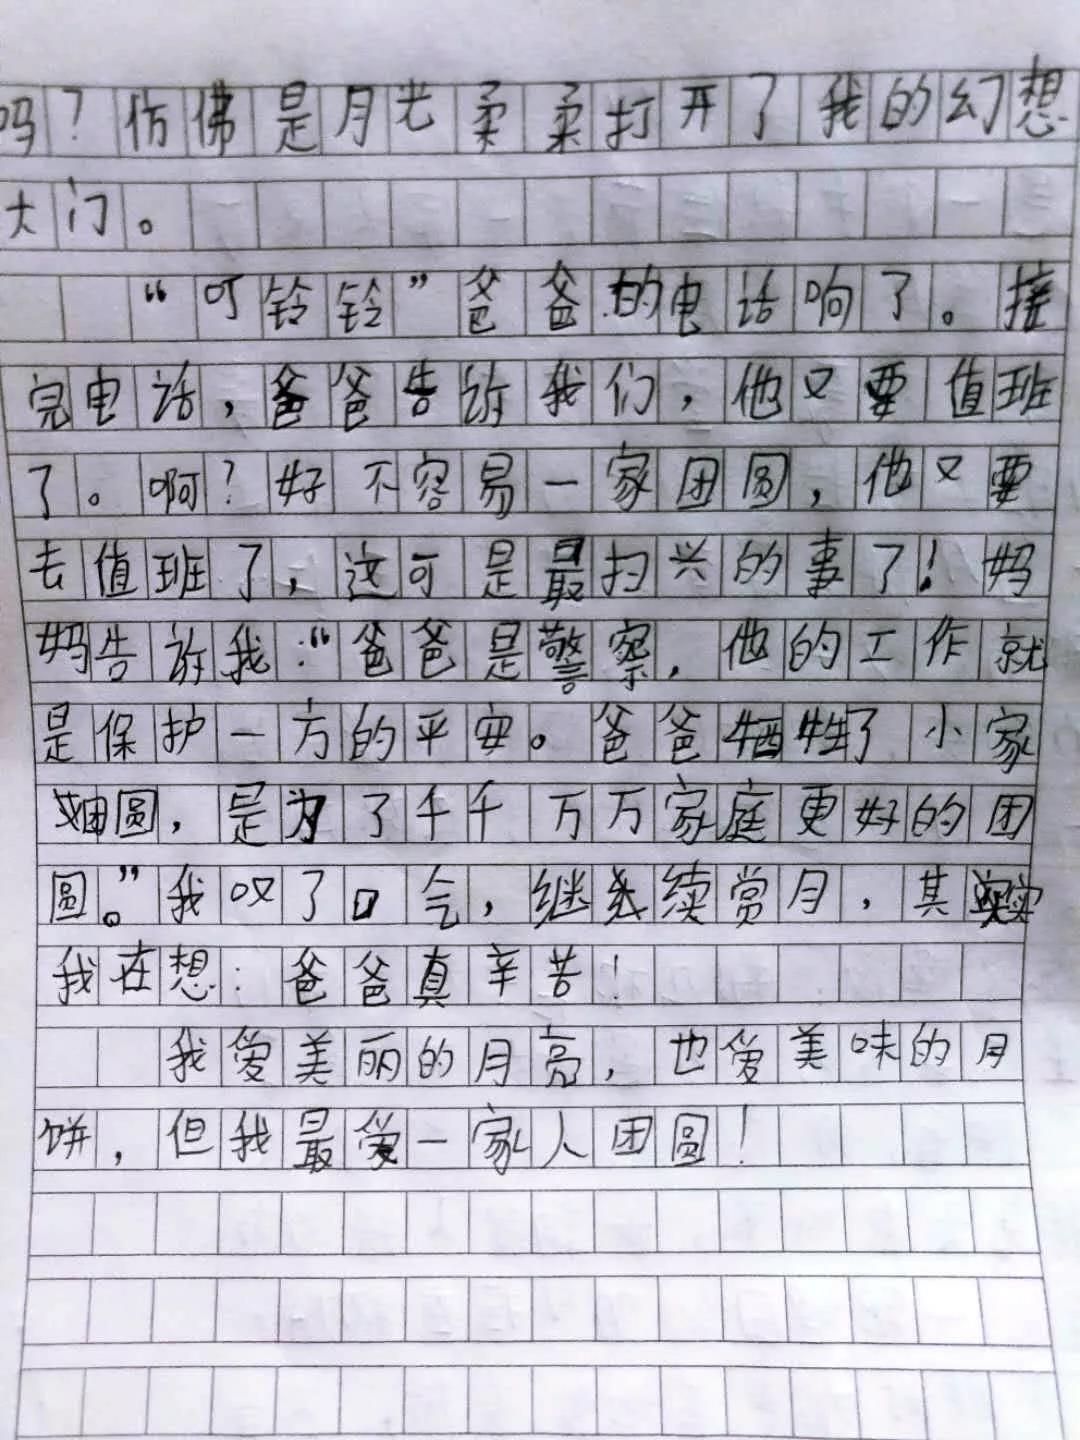 吗？仿佛是月光柔柔打开了我的幻想
大门。
“叮铃铃”爸爸的电话响了。接
完电话，爸爸告诉我们，他又要值班
了。啊？好不容易一家团圆，他又要
去值班了，这可是最扫兴的事了！妈
妈告诉我：“爸爸是警察，他的工作就
是保护一方的平安。爸爸牺牲了小家
圆，是为了千千万万家庭更好的团
圆。”我叹了口气，继续赏月，其实
我在想：爸爸真辛苦！
我爱美丽的月亮，也爱美味的月
饼，但我最爱一家人团圆！